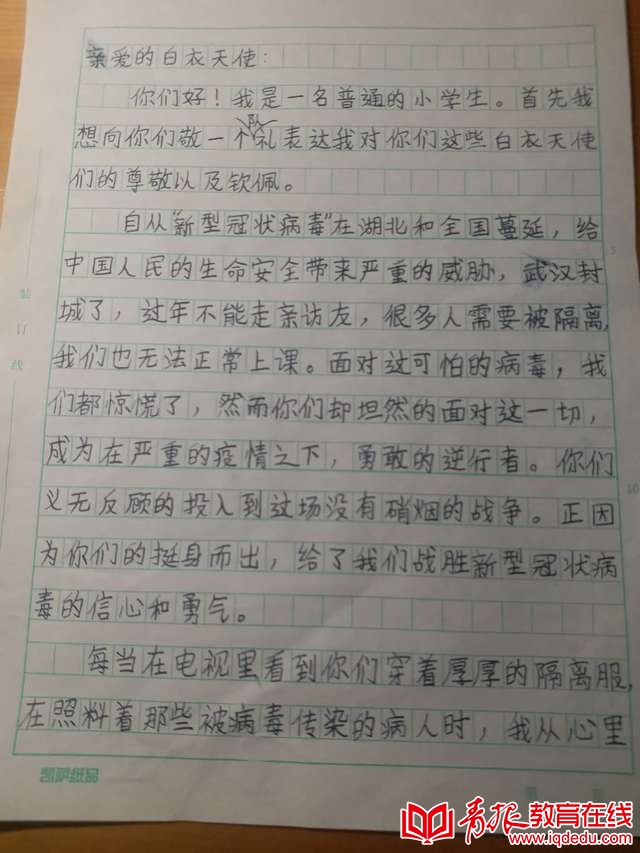 亲爱的白衣天使:
你们好!我是一名普通的小学生。首先我
想向你们敬一个队礼表达我对你们这些白衣天使
们的尊敬以及钦佩。
自从“新型冠状病毒”在湖北和全国蔓延,给
中国人民的生命安全带来严重的威胁,武汉封
城了,过年不能走亲访友,很多人需要被隔离,
我们也无法正常上课。面对这可怕的病毒,我
们都惊慌了,然而你们却坦然的面对这一切,
成为在严重的疫情之下,勇敢的逆行者。你们
义无反顾的投入到这场没有硝烟的战争。正因
为你们的挺身而出,给了我们战胜新型冠状病
毒的信心和勇气。
每当在电视里看到你们穿着厚厚的隔离服,
在照料着那些被病毒传染的病人时,我从心里
装
订
线
5
10
青报教育在线
www.iqdedu.com